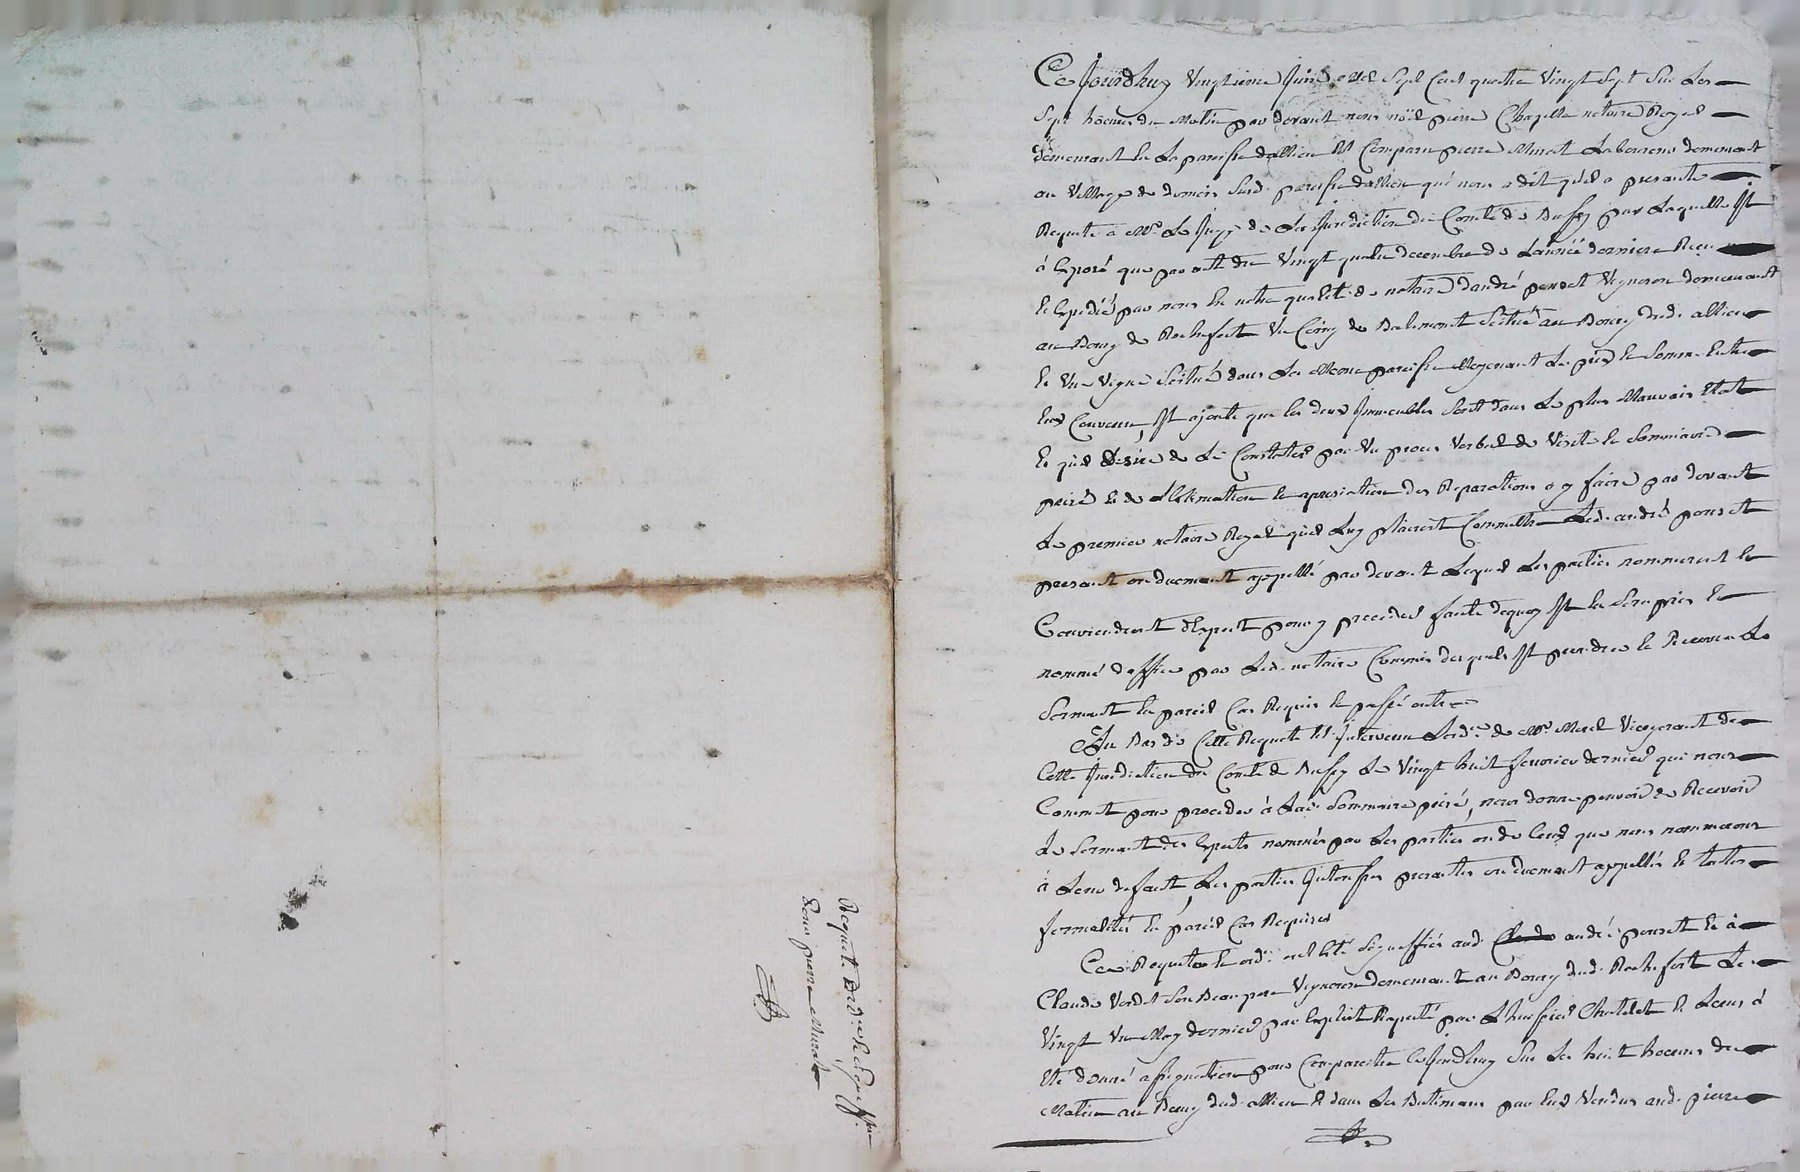 Requete Ord.ce & signiffi.on
pour pierre Murat
Ce Jourdhuy Vingtieme Juin Mil Sept Cent quatre Vingt Sept Sur Les
Sept heures du Matin par devant nous noël pierre Chapelle notaire Royal
demeurant En La paroisse dallieu Est Comparu pierre Murat Laboureur demeurant
au Village de susd. paroisse dallieu qui nous a dit qu'il a presanté
Requete a Mr. Le Juge de La Jurisdiction du Comté de Bussy par Laquelle Il
à Exposé que par acte du Vingt quatre decembre de L'année derniere Reçu
Et Expedié par nous En notre qualité de notaire d'andré ponset Vigneron demeurant
au Bourg de Rochefort Un Coing de Batimant Scitué au Bourg dud. allieu
Et Une Vigne Scitué dans La Meme paroisse Moyenant Le prix Et Somme Entre
Eux Convenu, Il ajoute que les deux Immeubles Sont dans Le plus Mauvais Etat
Et qu'il desire de Le Constater par Un proces Verbal de Visite Et Sommaire
prisé Et de L'Estimation Et apresiation des Reparations a y faire par devant
Le premier notaire Royal qu'il Luy plairoit Commettre Led. andré ponset
presant ou duement appellé par devant Lequel Les parties nommeront Et
Conviendront d'Expert pour y proceder faute dequoy Il En Sera pris Et
nommé d'office par Led. notaire Commis desquels Il prendra Et Recevra Le
Sermant En pareil Cas Requis Et passé outre
Au Bas de Cette Requete Est Intervenu Lord.ce de Mr. Morel Vicegerant de
Cette Jurisdiction du Comté de Bussy Le Vingt huit fevrier dernier qui nous
Commet pour proceder à Lad. Sommaire prisé, nous donne pouvoir de Recevoir
Le Sermant des Experts nommés par Les parties ou de Ceux que nous nommerons
à Leur defaut, Les parties Interessées presantes ou duemant appellés Et toutes
formalités En pareil Cas Requises
Ces Requete Et ord.ce ont Eté Signiffiés aud. andré ponset Et à
Claude Verdet Son Beau pere Vigneron demeurant au Bourg dud. Rochefort Le
Vingt Un May dernier par Exploit Raporté par L'huissier Chatelet Et Leur à
Eté donné assignation pour Comparoitre Cejourdhuy Sur Les huit heures du
Matin au Bourg dud. allieu Et dans Les Batimans par Eux Vendus aud. pierre